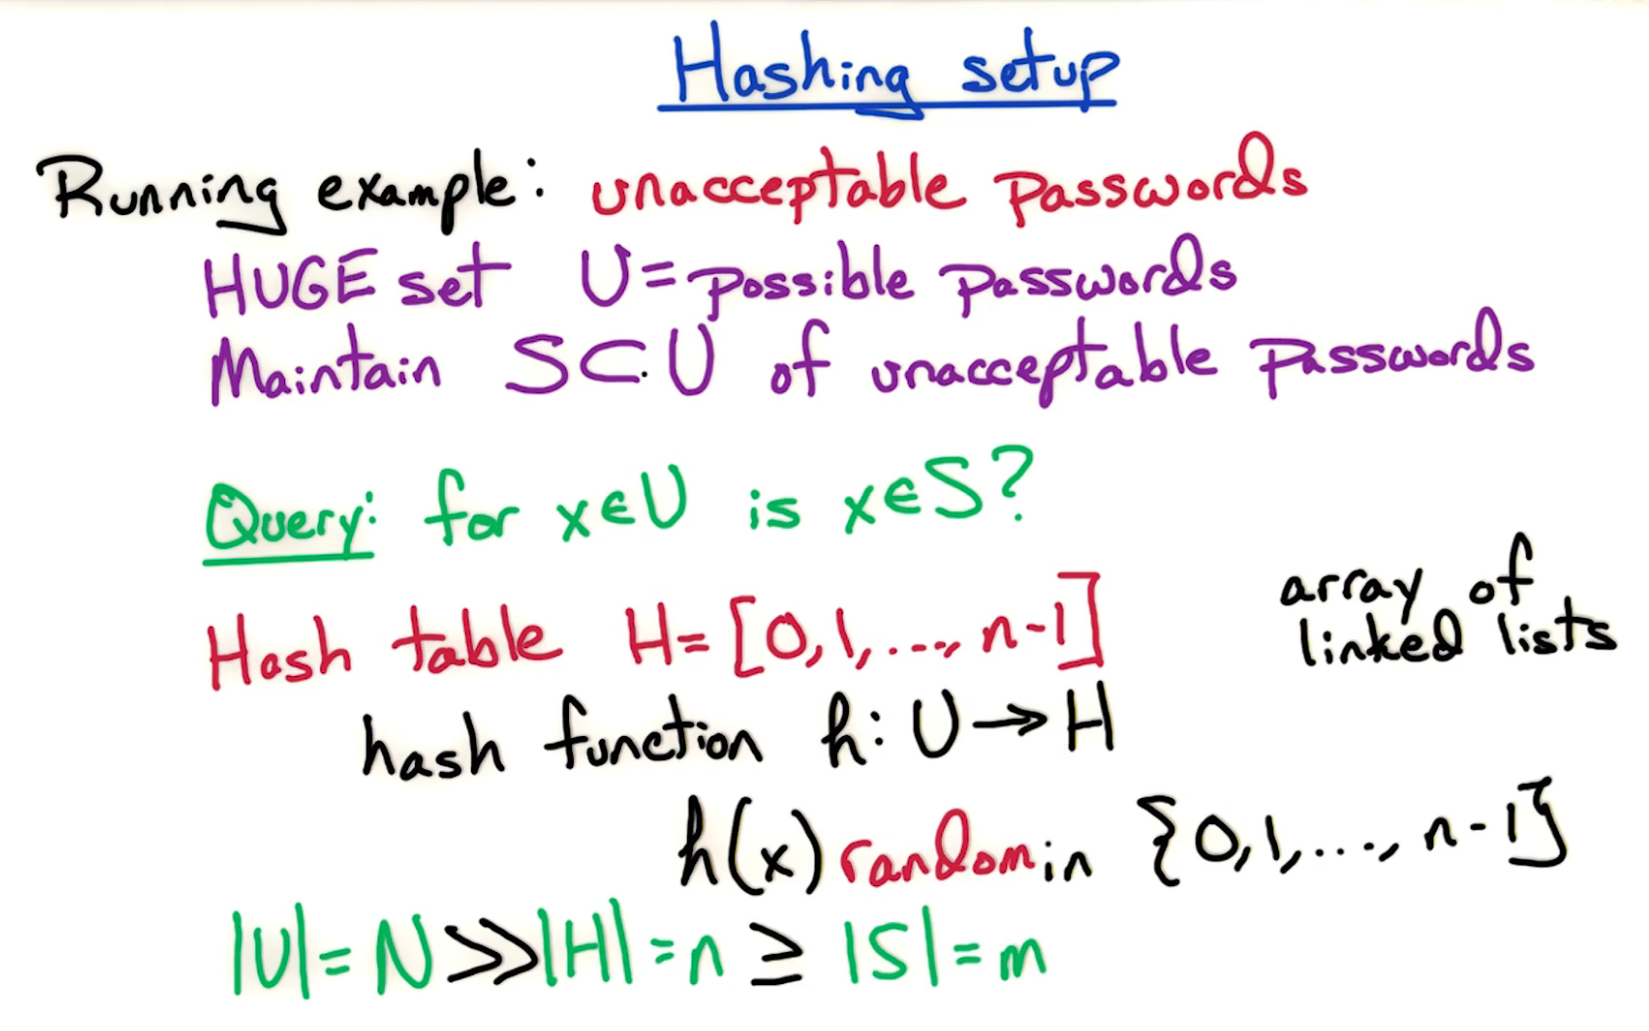 Hashing setup
Running example: unacceptable passwords
HUGE set U = possible passwords
Maintain S ⊂ U of unacceptable passwords
Query: for x ∈ U is x ∈ S?
Hash table H = [0, 1, ..., n-1]
array of
linked lists
hash function h: U → H
h(x) random in {0, 1, ..., n-1}
|U| = N >> |H| = n ≥ |S| = m